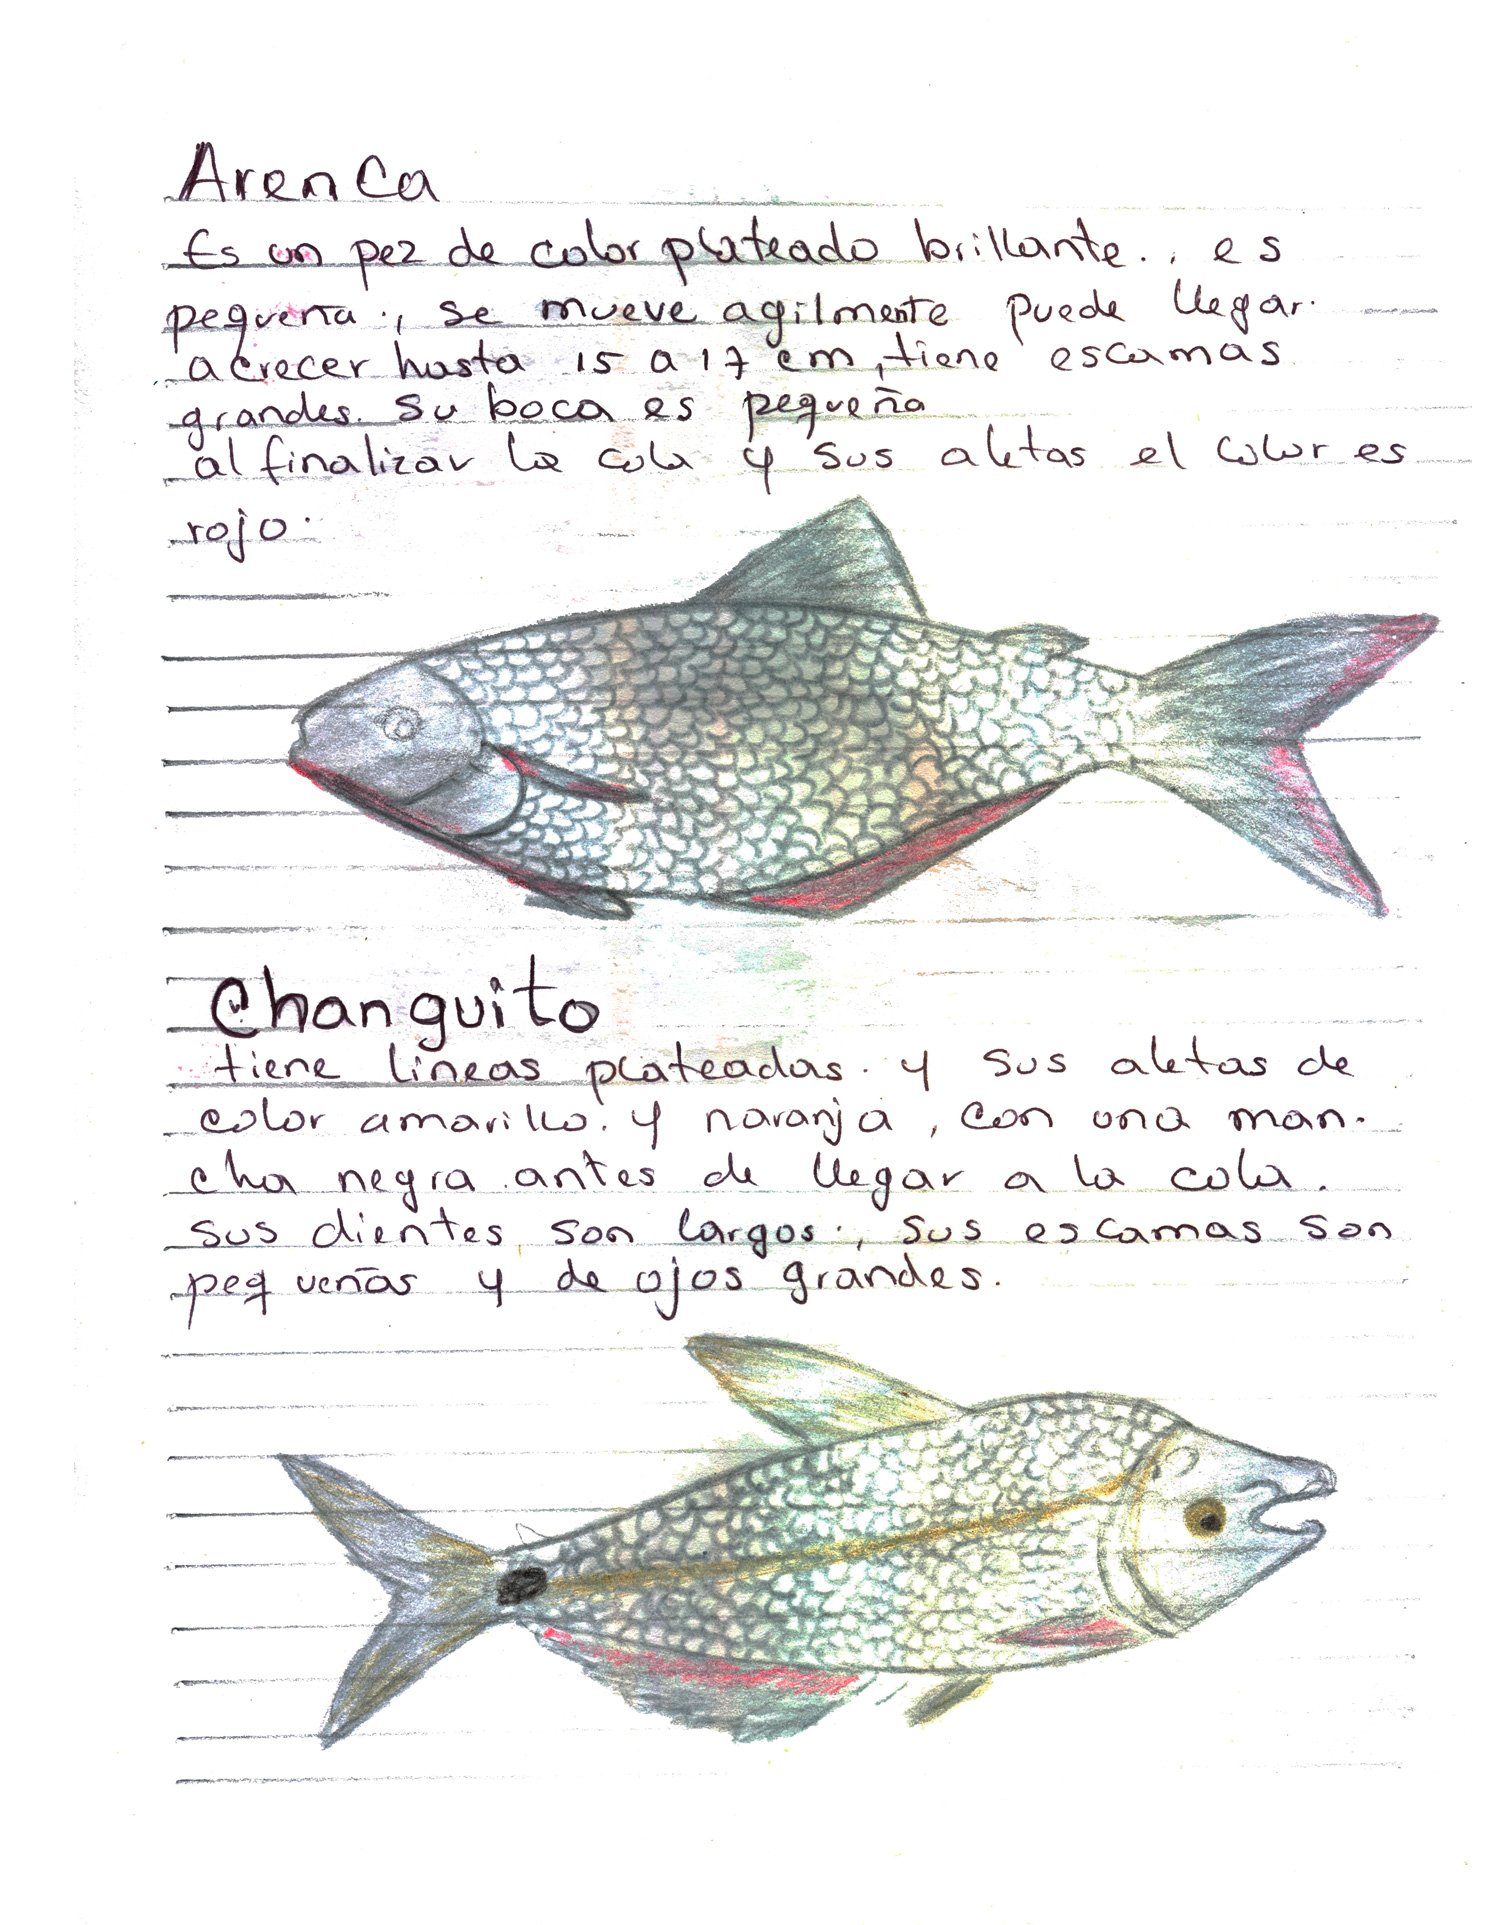 Arenca
Es un pez de color plateado brillante.. es
pequeña., se mueve agilmente puede llegar.
a crecer hasta 15 a 17 cm, tiene escamas
grandes. Su boca es pequeña
al finalizar la cola y sus aletas el color es
rojo.
Changuito
tiene lineas plateadas. y sus aletas de
color amarillo. y naranja, con una man-
cha negra antes de llegar a la cola.
sus dientes son largos., sus escamas son
pequeñas y de ojos grandes.